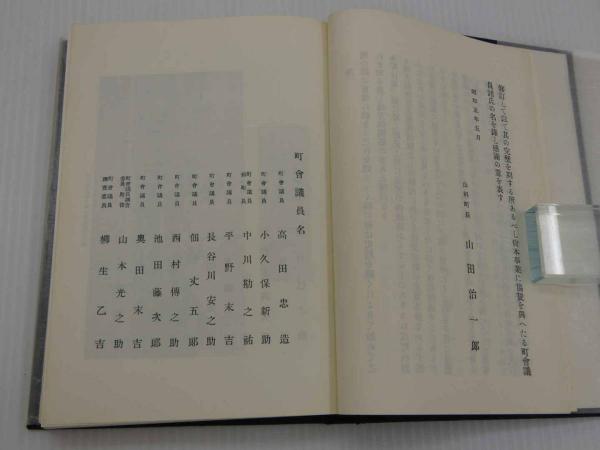 修訂して以て其の完璧を期する所あるべし倘本事業に協賛を與へたる町會議
員諸氏の名を録し感謝の意を表す
昭和五年五月
山科町長 山田治一郎
町會議員名
町會議員 高田忠造
町會議員 小久保新助
町會議員 中川勘之祐
町會議員 平野末吉
町會議員 長谷川安之助
町會議員 佃丈五郎
町會議員 西村傳之助
町會議員 池田藤次郎
町會議員 奥田末吉
町會議員 山本光之助
町會議員 柳生乙吉